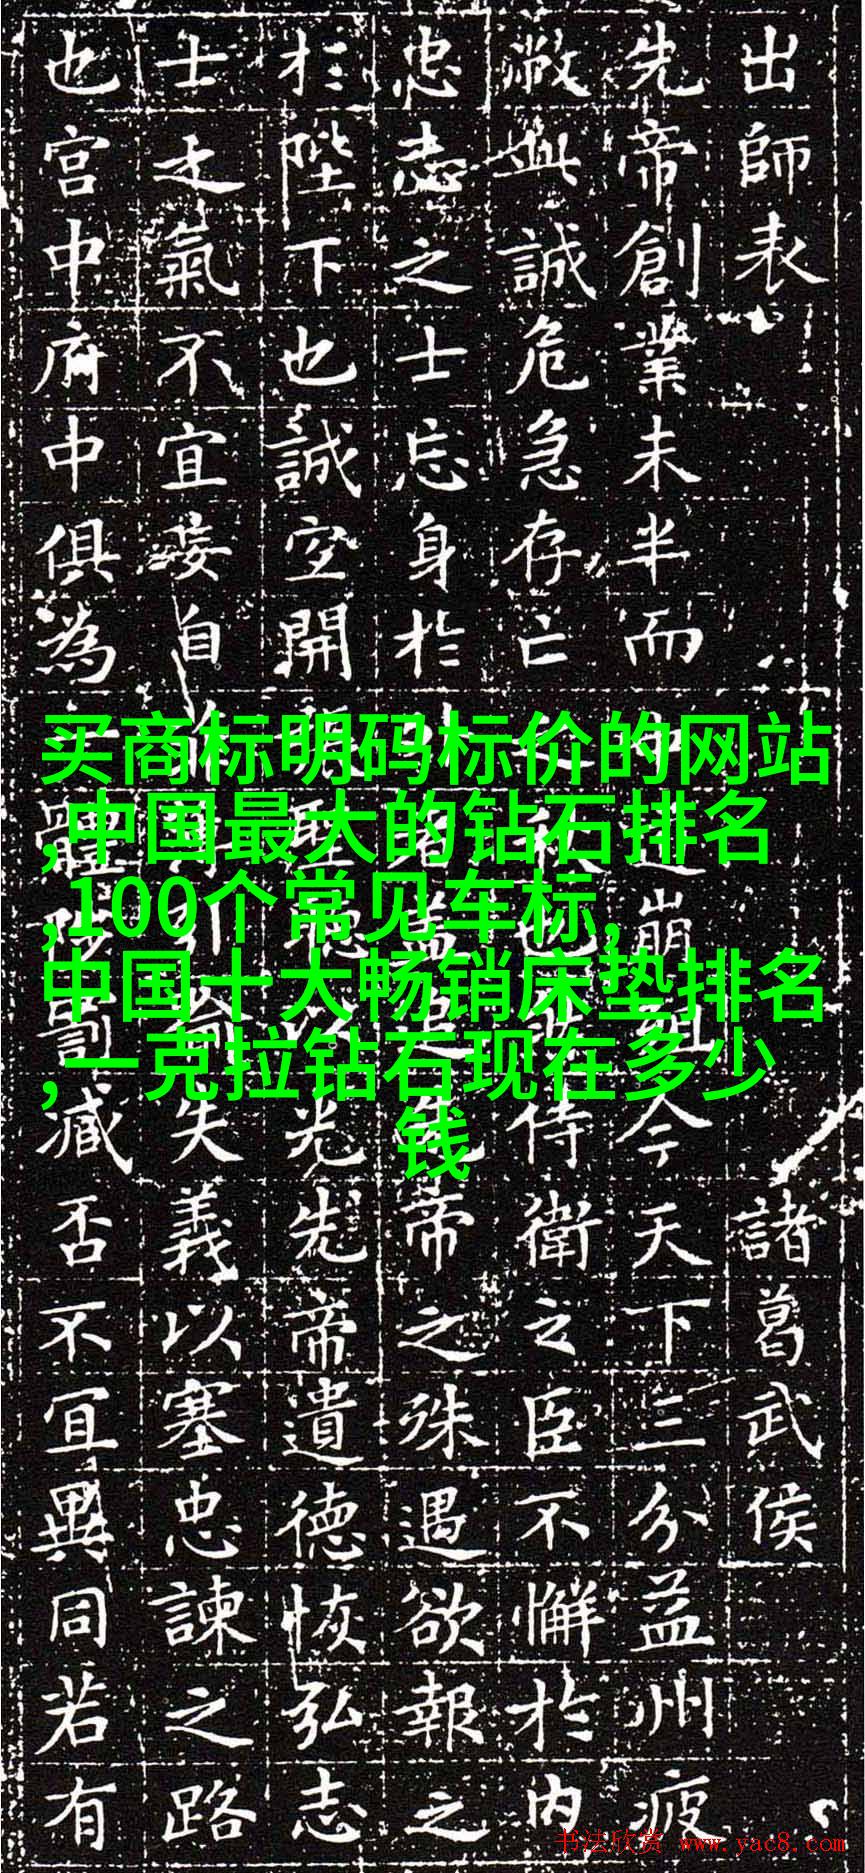 出師表
諸葛武侯
先帝創業未半而中道崩殂今天下三分益州疲
敝此誠危急存亡之秋也然侍衛之臣不懈於内
忠志之士忘身於外者蓋追先帝之殊遇欲報之
於陛下也誠空開張聖聽以光先帝遺德恢弘志
士之氣不宜妄自引喻失義以塞忠諫之路
也宮中府中俱為一體陟罰臧否不宜異同若有
买商标明码标价的网站
,中国最大的钻石排名
,100个常见车标,
中国十大畅销床垫排名
,一克拉钻石现在多少
钱
书法欣赏 www.yac8.com